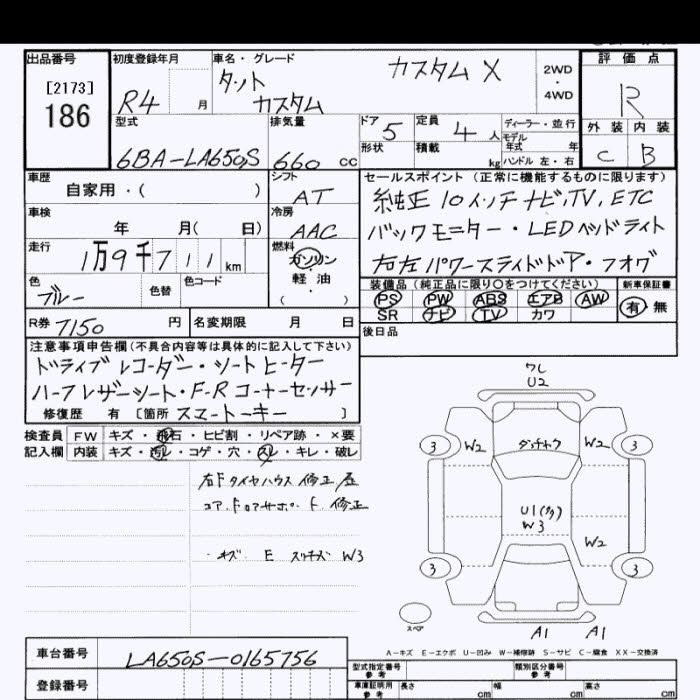 出品番号
[2173]
186
初度登録年月
R4 月
車名・グレード
タント カスタム X
カスタム
2WD
・
4WD
評価点
R
外装 内装
C B
型式
6BA-LA650S
排気量
660 cc
ドア 5
形状
定員 4 人
積載 kg
ディーラー・並行
モデル
年式 年
ハンドル 左・右
車歴
自家用・( )
シフト
AT
車検
年 月( 日)
冷房
AAC
走行
1万9千711 km
燃料
ガソリン
軽油
・
( )
色
ブルー
色替
色コード
R券 7150 円
名変期限 月 日
セールスポイント (正常に機能するものに限ります)
純正10インチナビ,TV,ETC
バックモニター・LEDヘッドライト
右左パワースライドドア・フォグ
装備品 (純正品に限り○をつけてください)
PS PW ABS エアB AW
SR ナビ TV カワ
新車保証書
有・無
後日品
注意事項申告欄(不具合内容等は具体的に記入して下さい)
ドライブレコーダー・シートヒーター
ハーフレザーシート・F-Rコーナーセンサー
スマートキー
修復歴 有 [箇所 ]
検査員
記入欄
FW キズ・飛石・ヒビ割・リペア跡・×要
内装 キズ・汚レ・コゲ・穴・スレ・キレ・破レ
右F タイヤハウス 修正
コアサポート 修正
キズ E W3
ワレ
U2
3 W2 W2 3
U1(多)
W3
W2
3 3
スペア
A1 A1
A-キズ E-エクボ U-凹み W-補修跡 S-サビ C-腐食 XX-交換済
車台番号 LA650S-0165756
登録番号
型式指定番号
参考
類別区分番号
参考
車庫証明用
参考
長さ cm 幅 cm 高さ cm